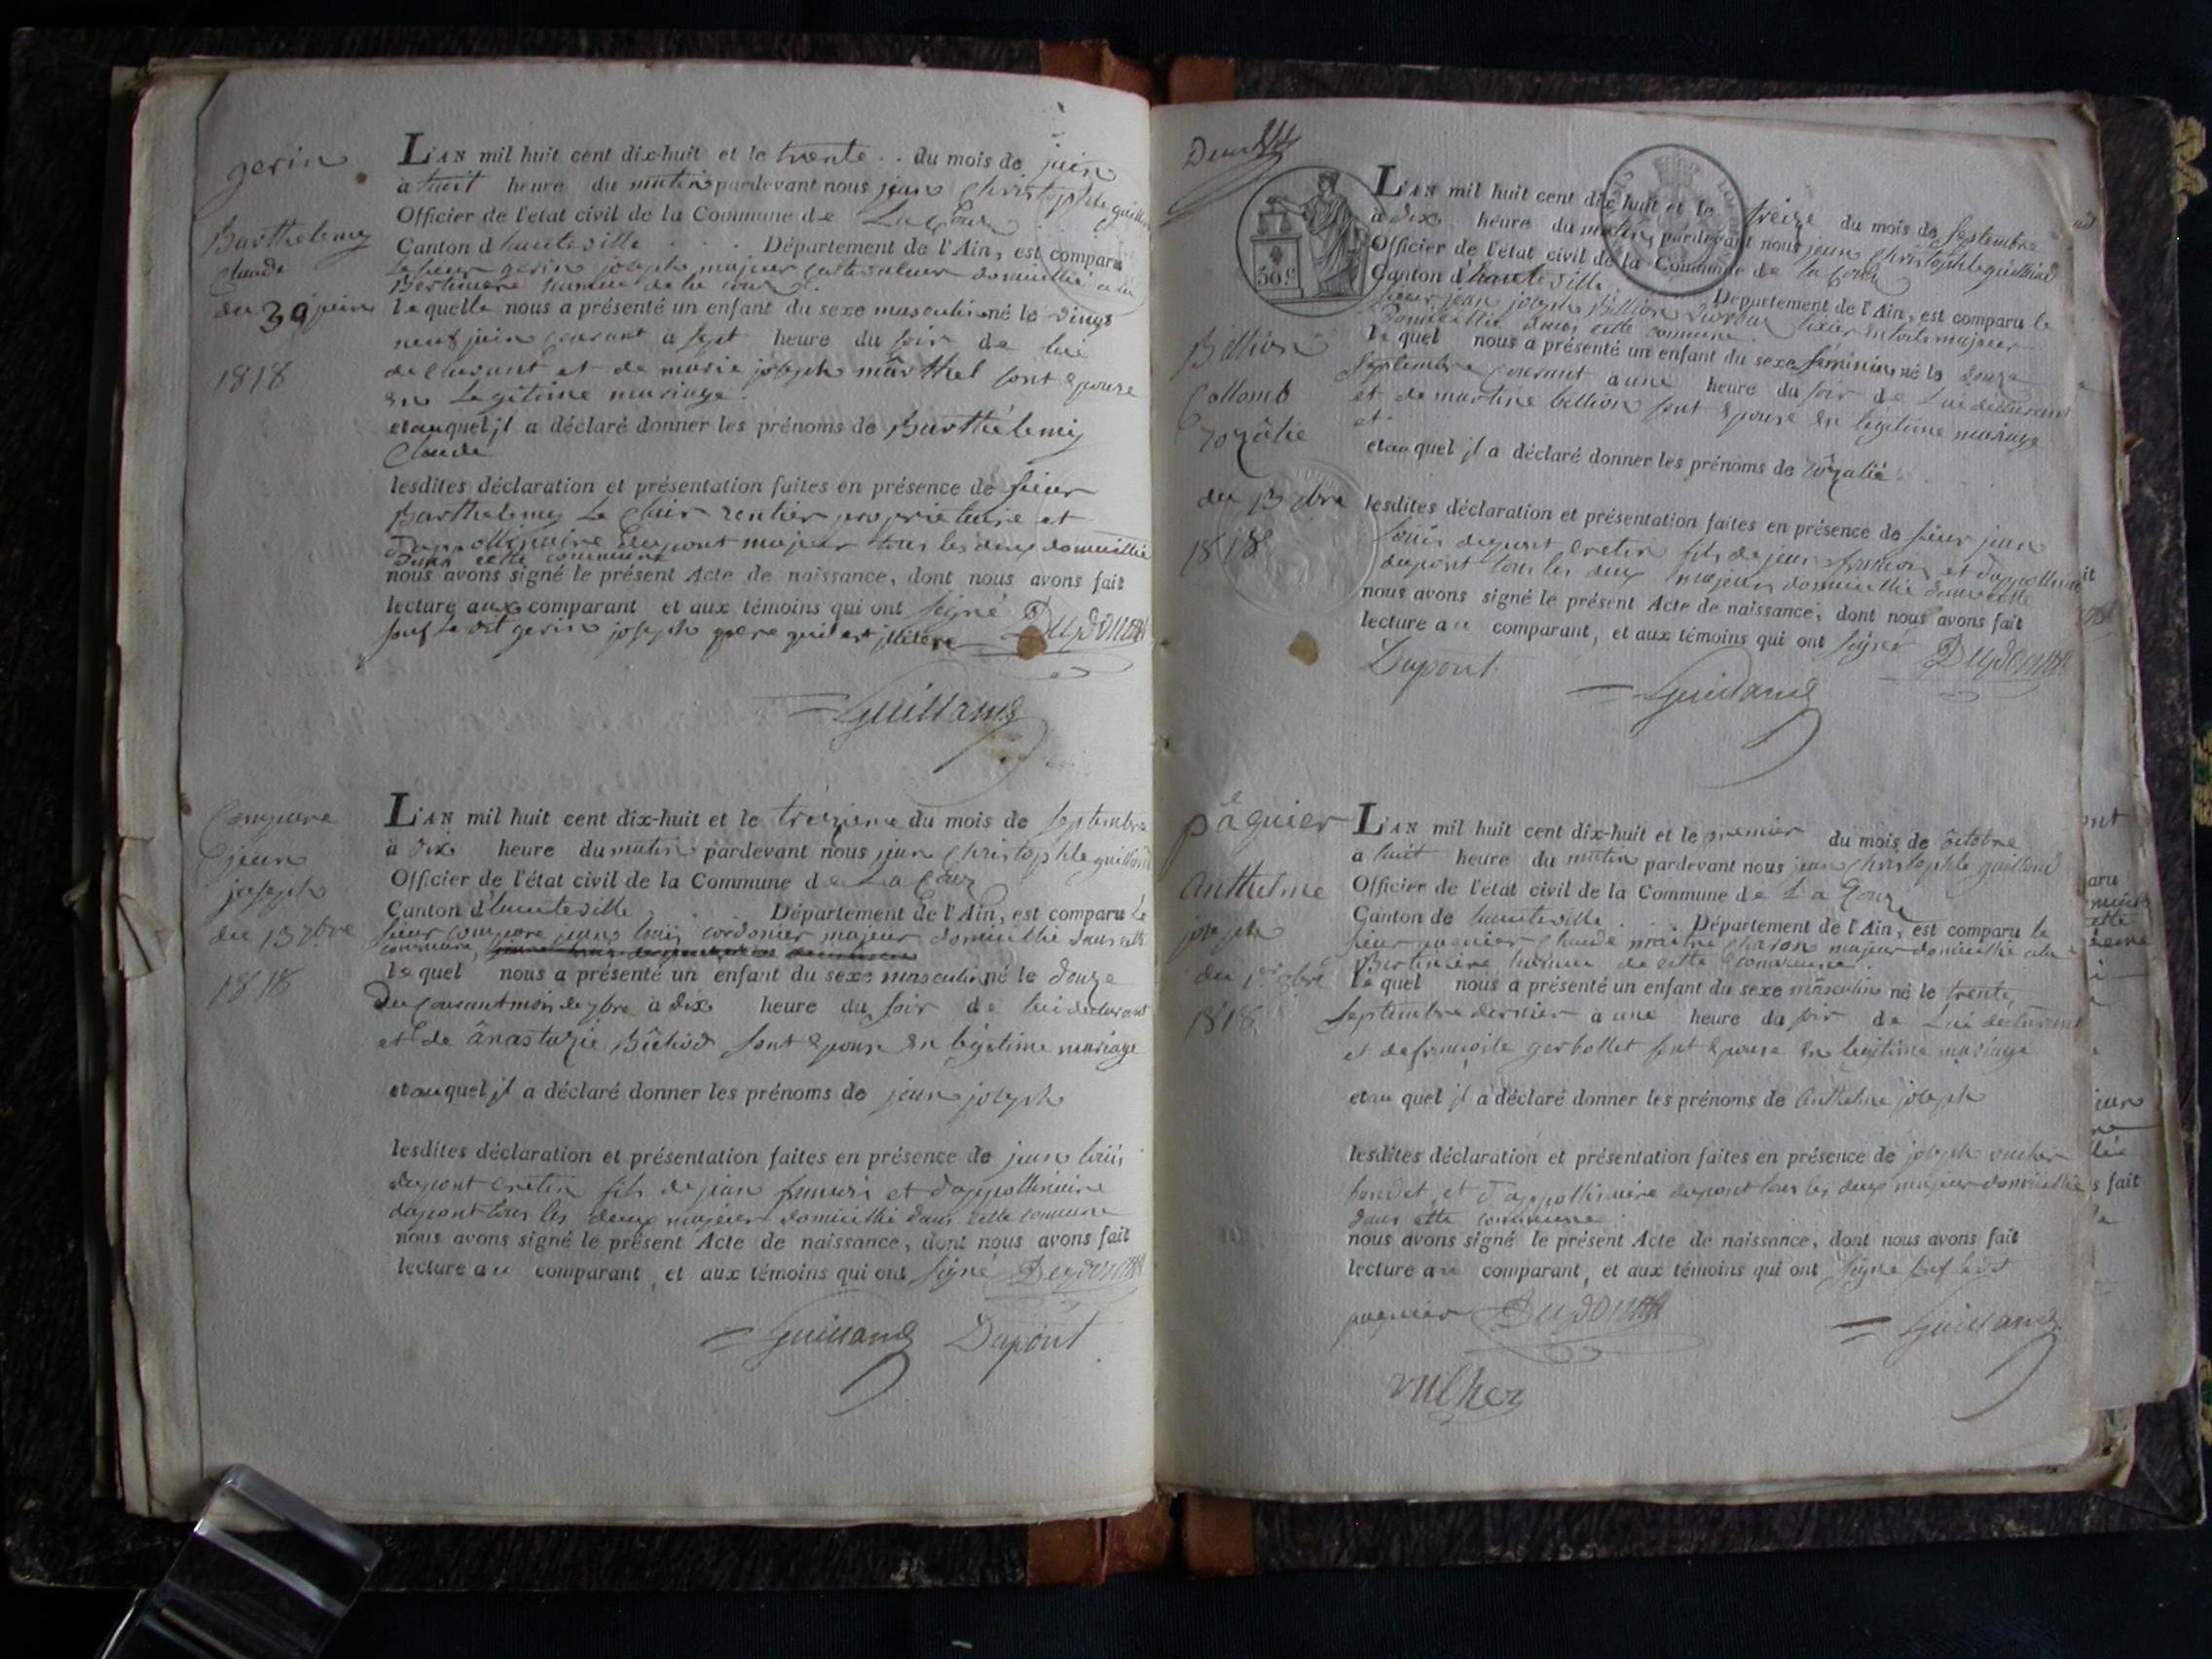 gerin
Barthelemy
Claude
du 30 juin
1818
L'AN mil huit cent dix-huit et le trente .. du mois de juin
à huit heure du matin pardevant nous jean Christophle guilland
Officier de l'etat civil de la Commune de La Coux
Canton d hauteville . . . Département de l'Ain, est comparu
Le sieur gerin joseph majeur cultivateur domicillié a la
Bertiniere hameau de la coux
lequelle nous a présenté un enfant du sexe masculin né le vingt
neuf juin courant à sept heure du soir de lui
declarant et de marie joseph mârthel sont Epouse
En Legitime mariage.
et auquel jl a déclaré donner les prénoms de Barthélemij
Claude
lesdites déclaration et présentation faites en présence de sieur
Barthelemy Le Clair rentier proprietaire et
d'appollinaire dupont majeur tous les deux domicillié
dans cette commune
nous avons signé le présent Acte de naissance, dont nous avons fait
lecture aux comparant et aux témoins qui ont signé Dupont
sauf Le dit gerin joseph pere quil est jllitere
Guilland
Compare
jean
joseph
du 13 7bre
1818
L'AN mil huit cent dix-huit et le treizieme du mois de septembre
à dix heure du matin pardevant nous jean Christophle guilland
Officier de l'état civil de la Commune de La Coux
Canton d hauteville Département de l'Ain, est comparu Le
sieur compare jean loüis cordonier majeur domicillié dans cette
commune,
lequel nous a présenté un enfant du sexe masculin né le douze
du courant mois de 7bre à dix heure du soir de lui declarant
et de ânastazie sont Epouse En légitime mariage
et auquel jl a déclaré donner les prénoms de jean joseph
lesdites déclaration et présentation faites en présence de jean loüis
dupont cretin fils de jean francois et d'appollinaire
dupont tous les deux majeur domicillié dans cette commune
nous avons signé le présent Acte de naissance, dont nous avons fait
lecture au comparant, et aux témoins qui ont signé Dupont
Guilland Dupont
30 c.
Billion
Collomb
rozâlie
du 13 7bre
1818
L'AN mil huit cent dix huit et le treize du mois de septembre
à dix heure du matin pardevant nous jean Christophle guilland
Officier de l'état civil de la Commune de la Coux
Canton d hauteville . Département de l'Ain, est comparu le
sieur jean joseph Billion tixier en toile majeur
domicillié dans cette commune
lequel nous a présenté un enfant du sexe féminin né le douze
septembre courant a une heure du soir de Lui declarant
et de martine billion sont Epouse En légitime mariage
et
et au quel jl a déclaré donner les prénoms de rozalie
lesdites déclaration et présentation faites en présence de sieur jean
loüis dupont cretin fils de jean francois et d'appollinaire
dupont tous les deux majeur domicillié dans cette
nous avons signé le présent Acte de naissance, dont nous avons fait
lecture au comparant, et aux témoins qui ont signé Dupont
Dupont Guilland
pâquier
Anthelme
joseph
du 1er 8bre
1818
L'AN mil huit cent dix-huit et le premier du mois de octobre
a huit heure du matin pardevant nous jean christophle guilland
Officier de l'état civil de la Commune de La Coux
Canton de hauteville . . . Département de l'Ain, est comparu le
sieur paquier Claude maitre Charon majeur domicillié a la
Bertinière hameau de cette Commune.
lequel nous a présenté un enfant du sexe masculin né le trente
septembre dernier à une heure du soir de Lui declarant
et de françoise gerbollet sont Epouse En legitime mariage
et au quel jl a déclaré donner les prénoms de Anthelme joseph
lesdites déclaration et présentation faites en présence de joseph
et d'appollinaire dupont tous les deux majeur domicillié
dans cette commune
nous avons signé le présent Acte de naissance, dont nous avons fait
lecture au comparant, et aux témoins qui ont signé sauf ledit
paquier Dupont Guilland
vulhez